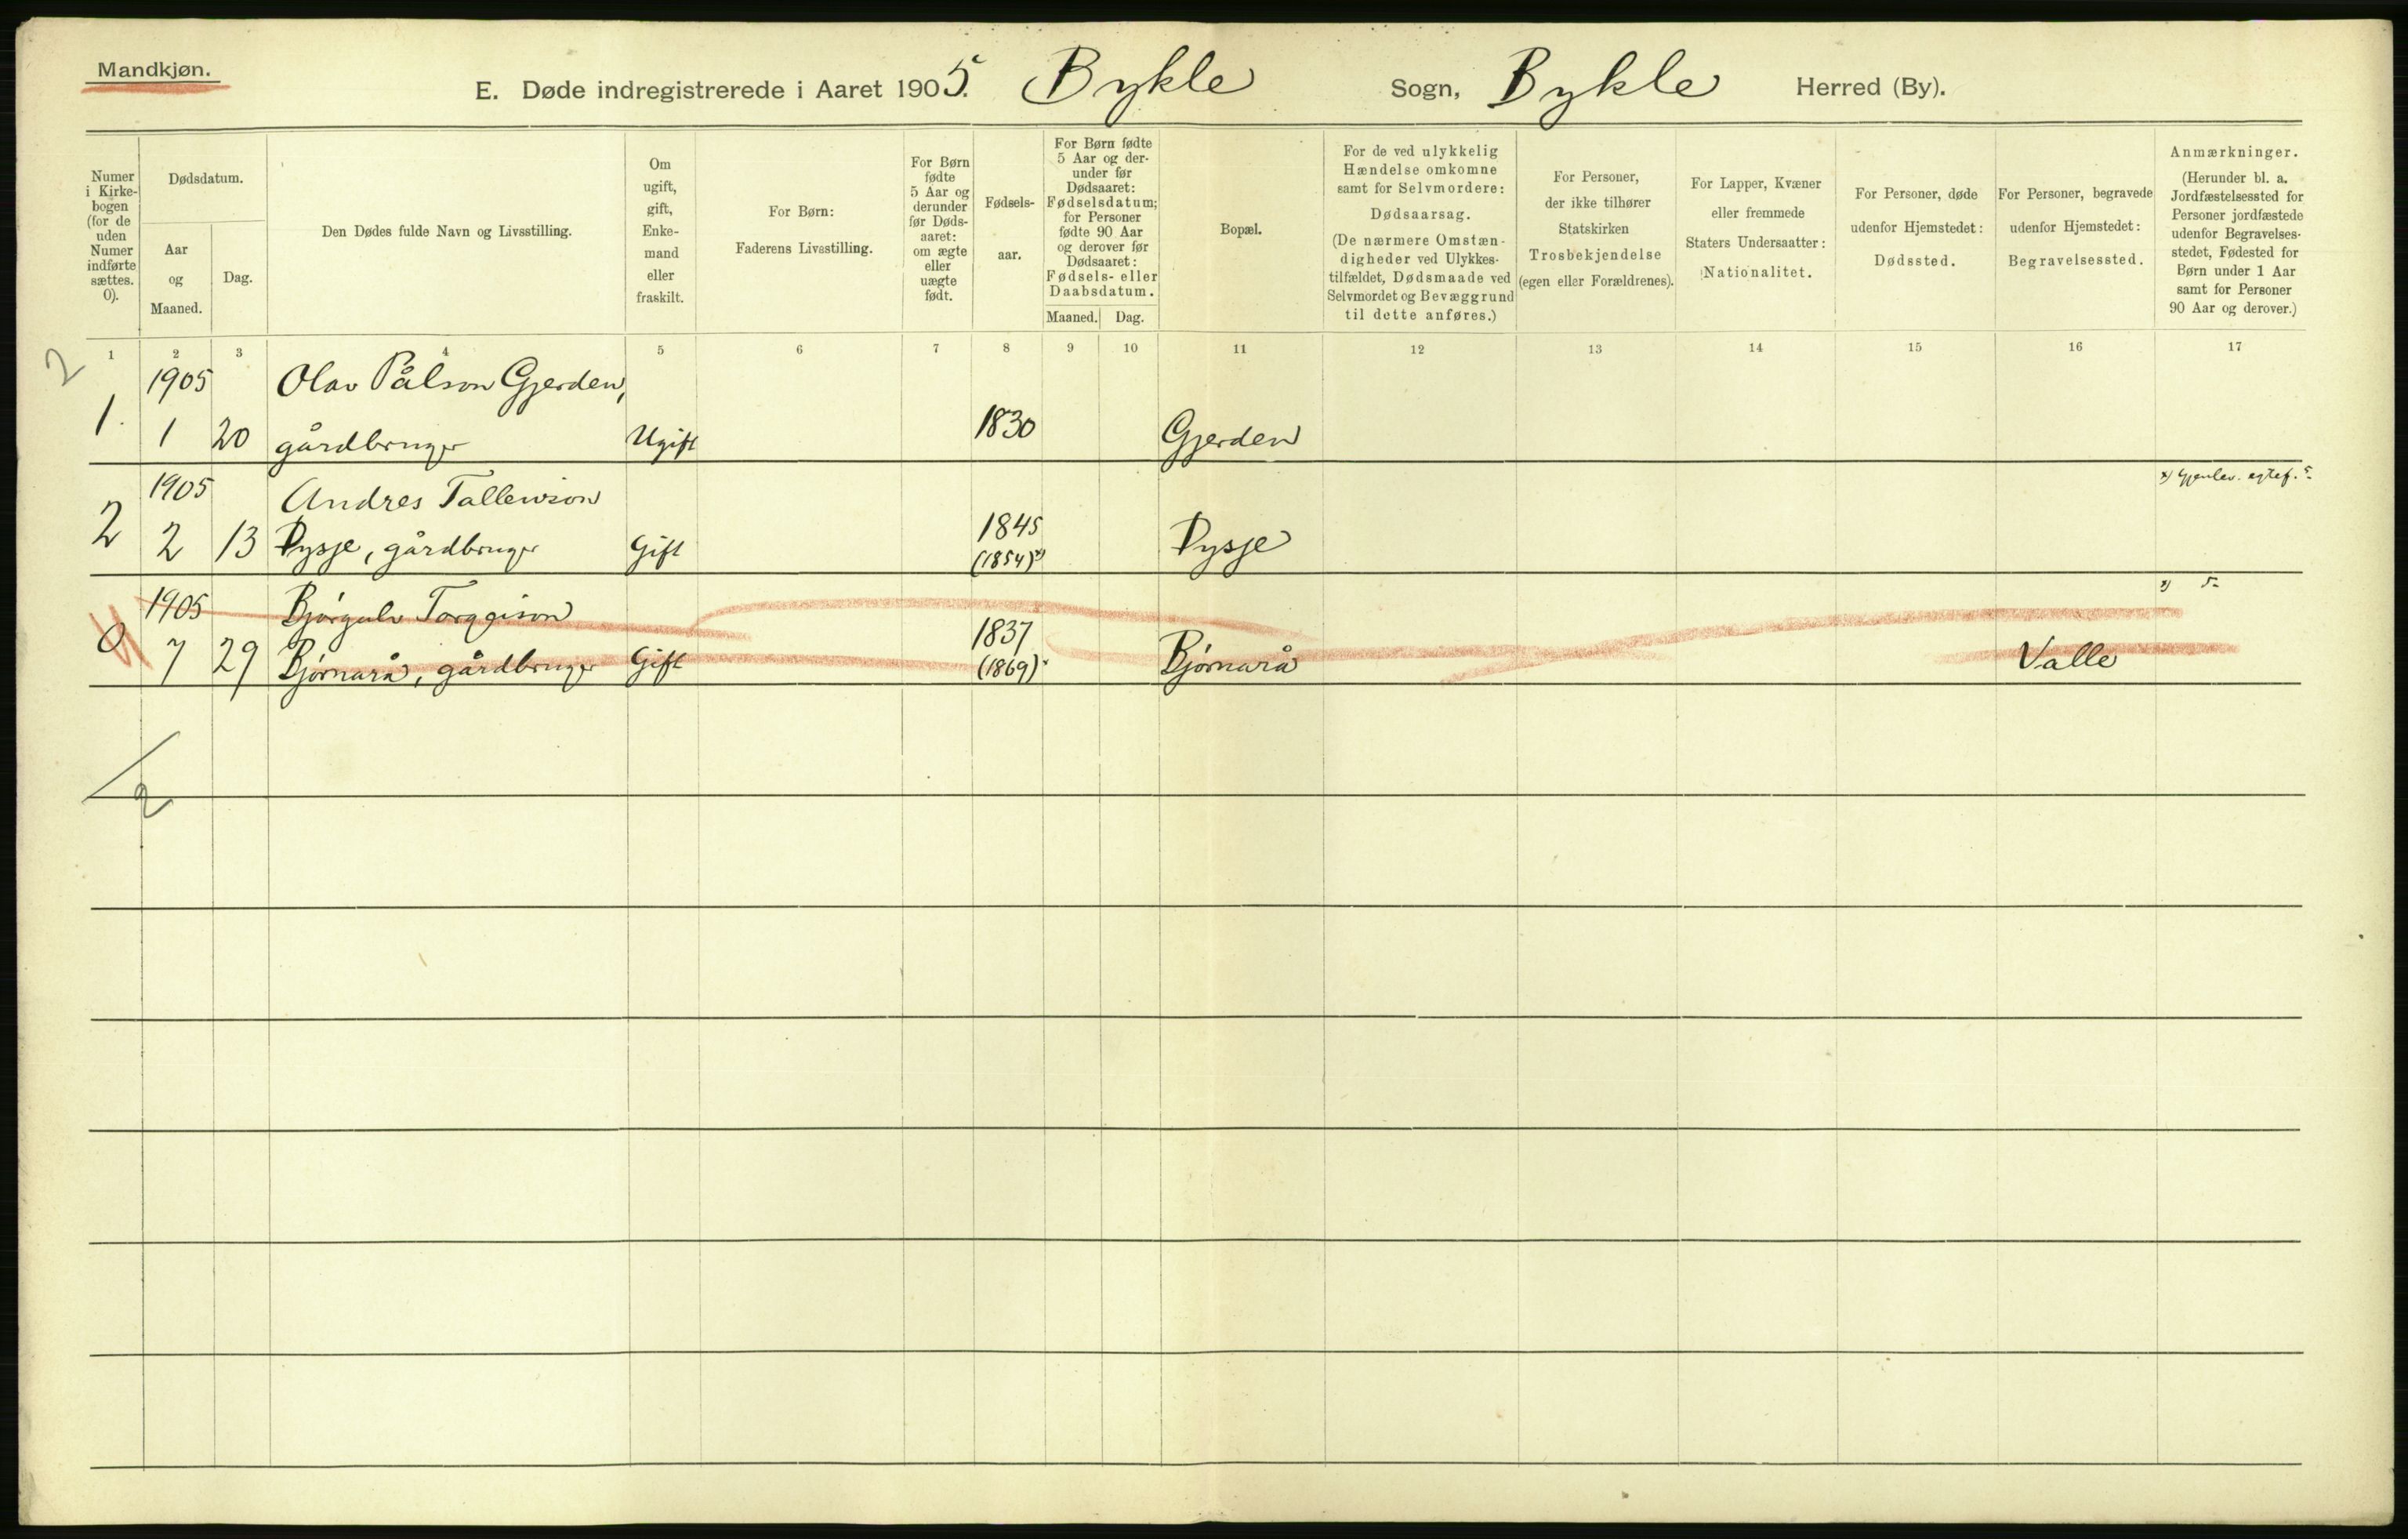 Mandkjøn.
E. Døde indregistrerede i Aaret 1905. Bykle Sogn, Bykle Herred (By).
Numer i Kirke-bogen (for de uden Numer indførte sættes. 0).
Dødsdatum.
Aar og Maaned.
Dag.
Den Dødes fulde Navn og Livsstilling.
Om ugift, gift, Enke-mand eller fraskilt.
For Børn:
Faderens Livsstilling.
For Børn fødte 5 Aar og derunder før Døds-aaret: om ægte eller uægte født.
Fødsels-aar.
For Børn fødte 5 Aar og der-under før Dødsaaret: Fødselsdatum; for Personer fødte 90 Aar og derover før Dødsaaret: Fødsels- eller Daabsdatum.
Maaned. Dag.
Bopæl.
For de ved ulykkelig Hændelse omkomne samt for Selvmordere:
Dødsaarsag.
(De nærmere Omstæn-digheder ved Ulykkes-tilfældet, Dødsmaade ved Selvmordet og Bevæggrund til dette anføres.)
For Personer, der ikke tilhører Statskirken
Trosbekjendelse
(egen eller Forældrenes).
For Lapper, Kvæner eller fremmede Staters Undersaatter:
Nationalitet.
For Personer, døde udenfor Hjemstedet:
Dødssted.
For Personer, begravede udenfor Hjemstedet:
Begravelsessted.
Anmærkninger.
(Herunder bl. a. Jordfæstelsessted for Personer jordfæstede udenfor Begravelses-stedet, Fødested for Børn under 1 Aar samt for Personer 90 Aar og derover.)
1 2 3 4 5 6 7 8 9 10 11 12 13 14 15 16 17
2
1905 Olav Pålson Gjerden,
1. 1 20 gårdbruger Ugift 1830 Gjerden
1905 Andres Tallewson x) Gjenlev. egtef.
2 2 13 Dysje, gårdbruger Gift 1845 (1854)x) Dysje
1905 Bjørgulv Torgeison
0 7 29 Bjørnarå, gårdbruger Gift 1837 (1869) Bjørnarå Valle
2